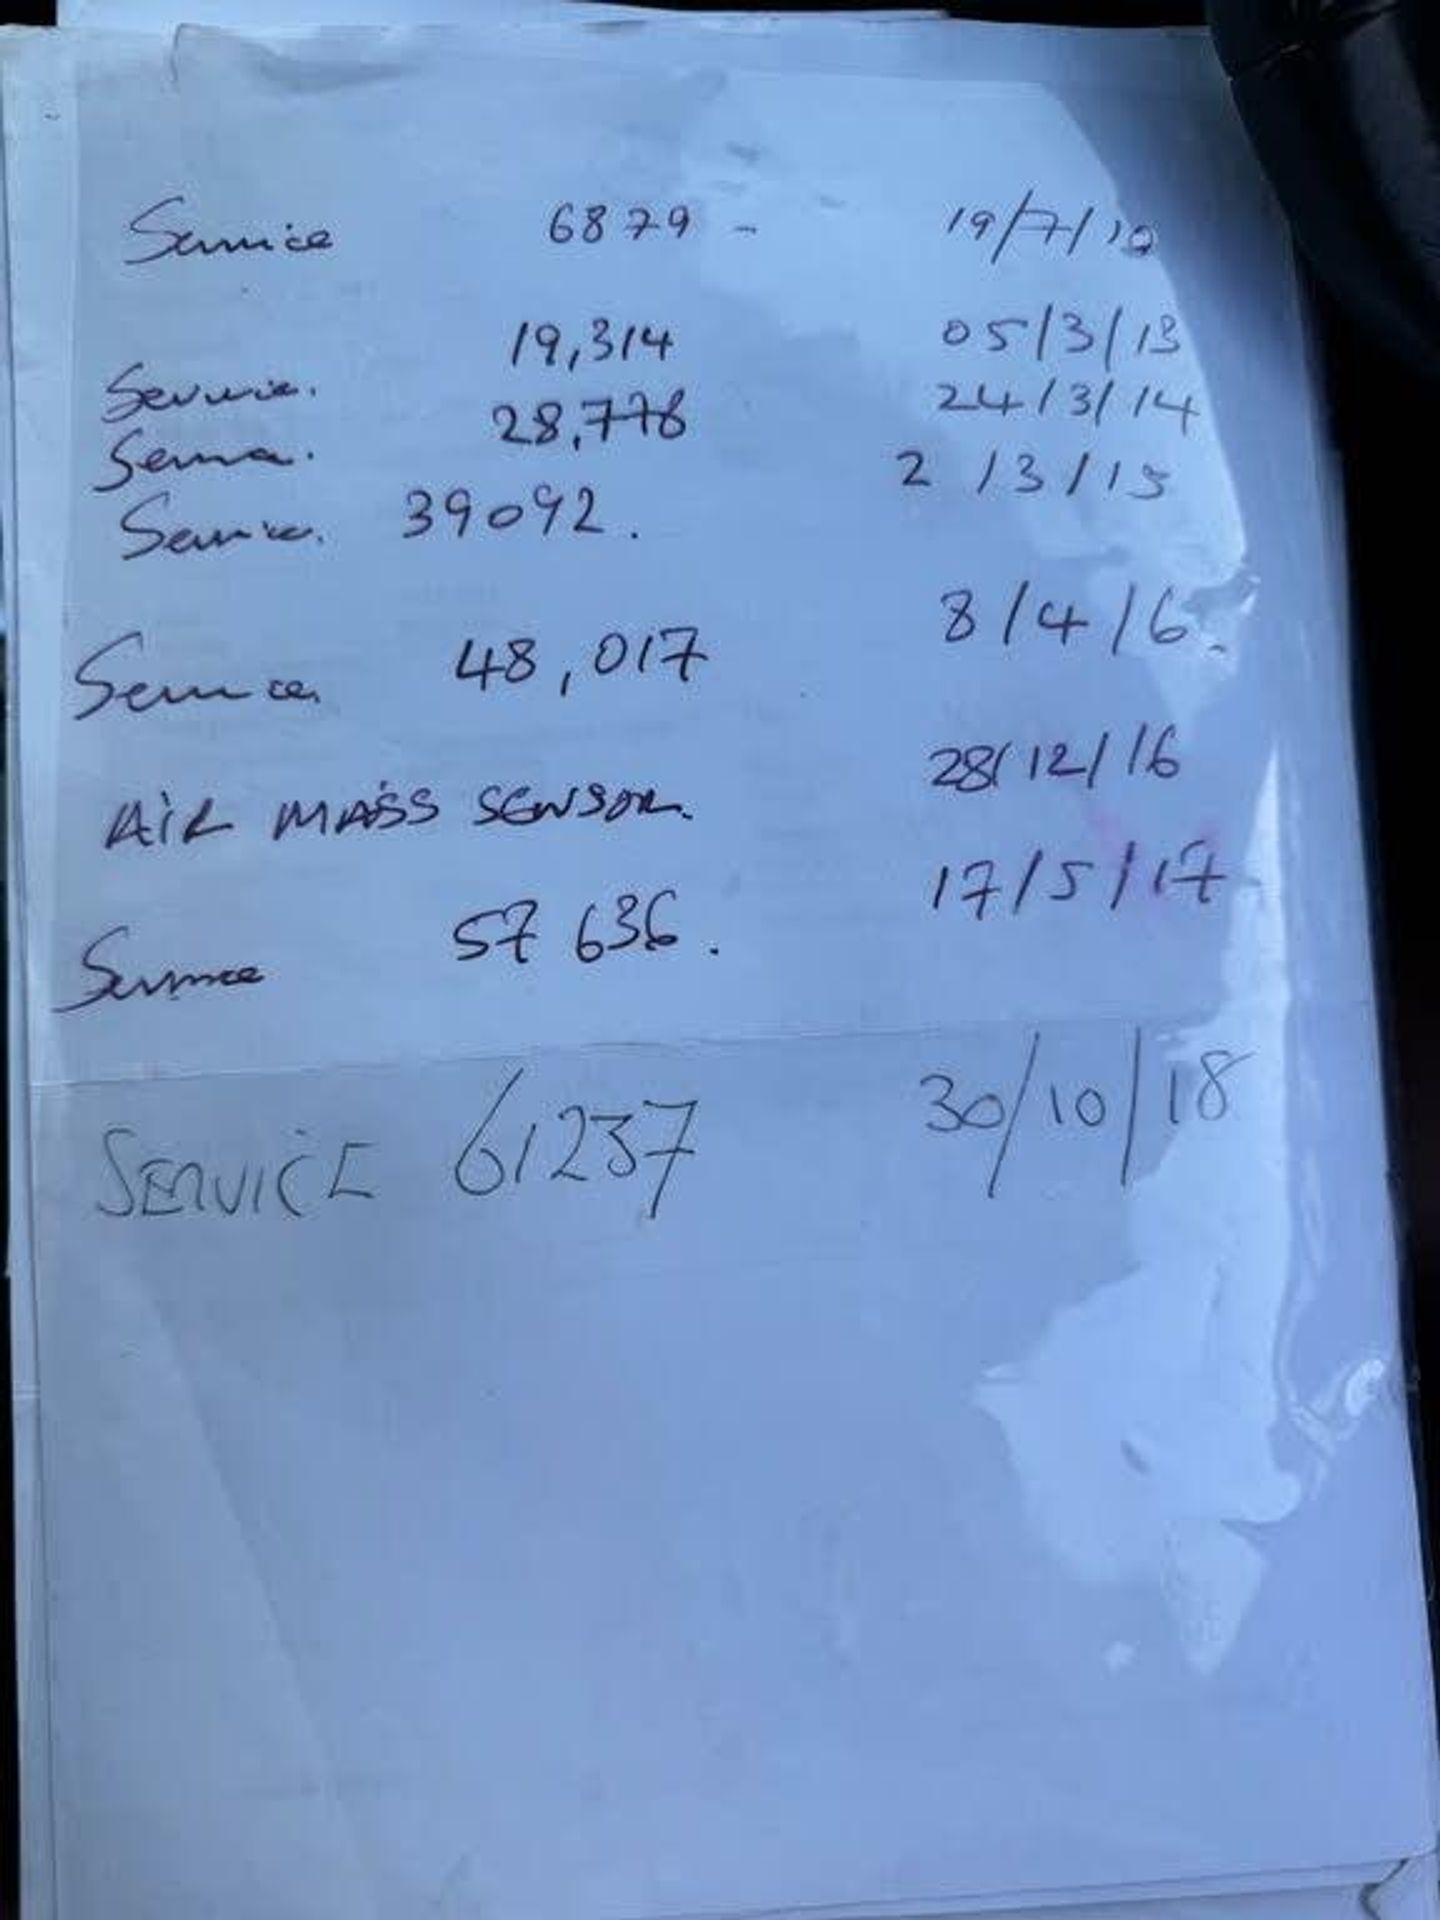 Service 6879 - 19/7/10
19,314 05/3/13
Service. 28,778 24/3/14
Service. 2/3/15
Service. 39092.
Service. 48,017 8/4/16.
AIR MASS SENSOR. 28/12/16
Service 57 636. 17/5/17
SERVICE 61237 30/10/18